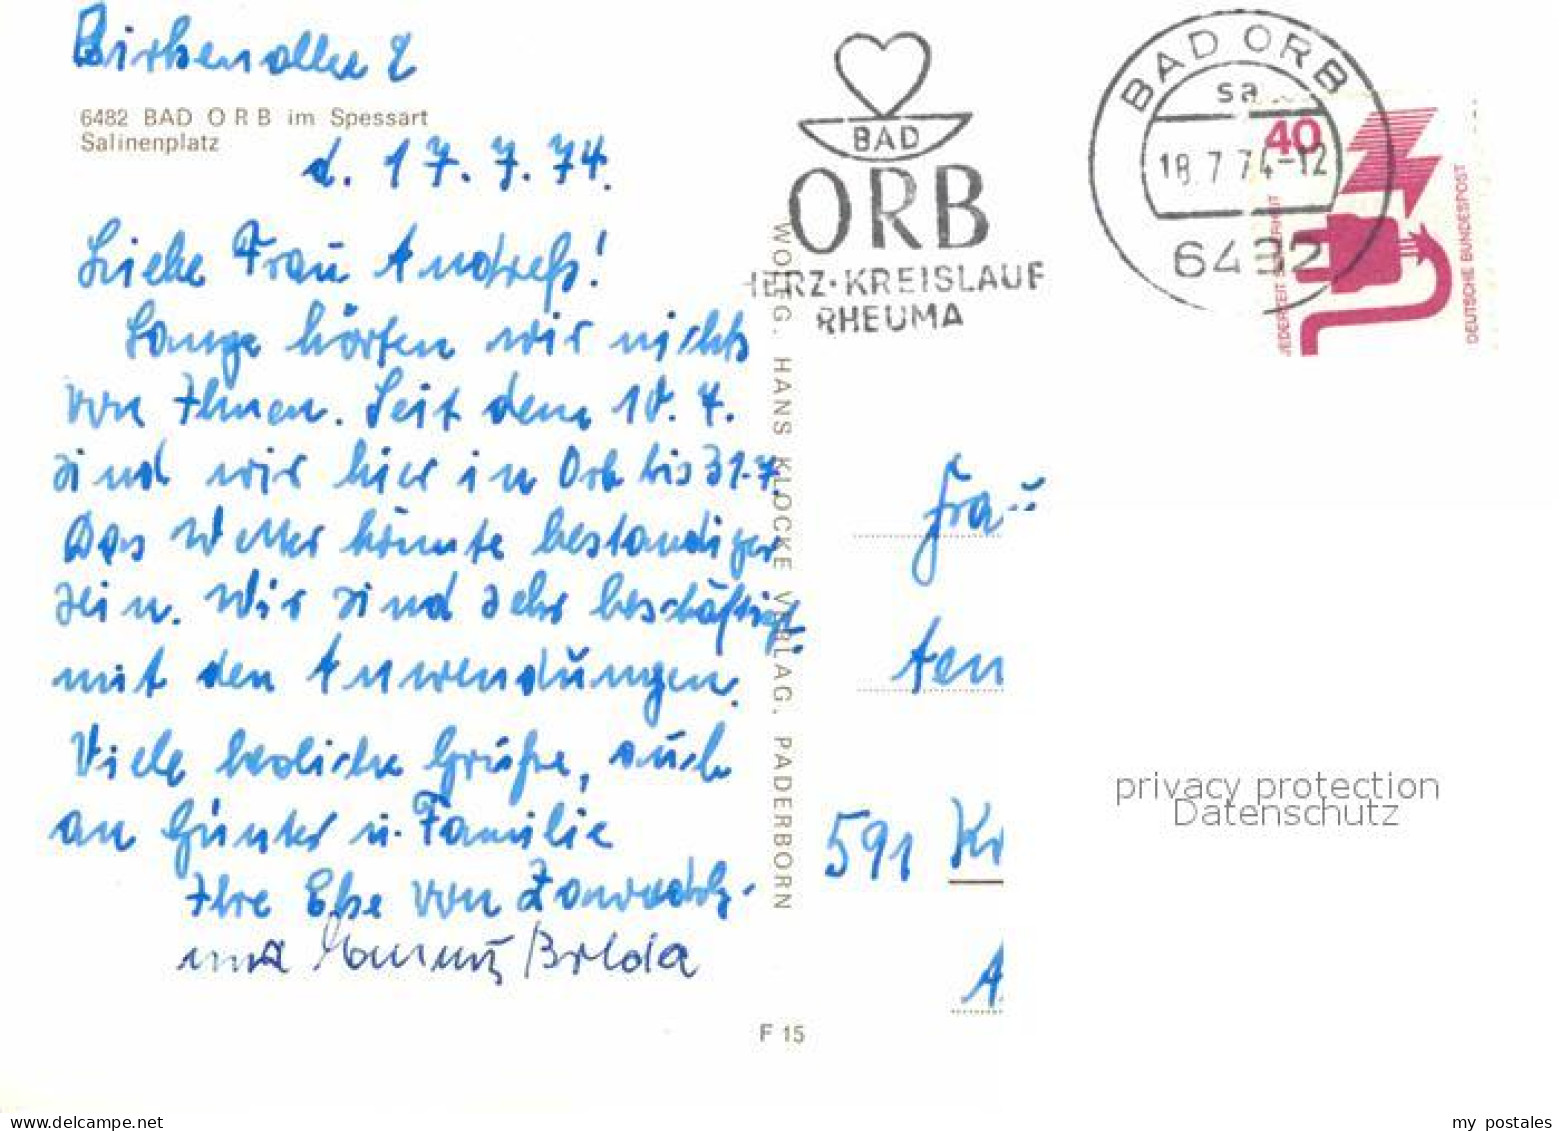 Birkenallee 2
6482 BAD ORB im Spessart
Salinenplatz
d. 17.7.74.
Liebe Frau Andreß!
Lange hörten wir nichts
von Ihnen. Seit dem 10.7.
sind wir hier in Orb bis 31.7.
Das Wetter könnte beständiger
sein. Wir sind sehr beschäftigt
mit den Anwendungen.
Viele herzliche Grüße, auch
an Günter u. Familie
Ihre Else von
und
WOLFG. HANS KLOCKE VERLAG, PADERBORN
F 15
BAD
ORB
HERZ·KREISLAUF
RHEUMA
BAD ORB
sa
18.7.74-12
6482
40
JEDERZEIT SICHERHEIT
DEUTSCHE BUNDESPOST
Frau
591 Kr
A
privacy protection
Datenschutz
© www.ansichtskarten-center.de
my postales